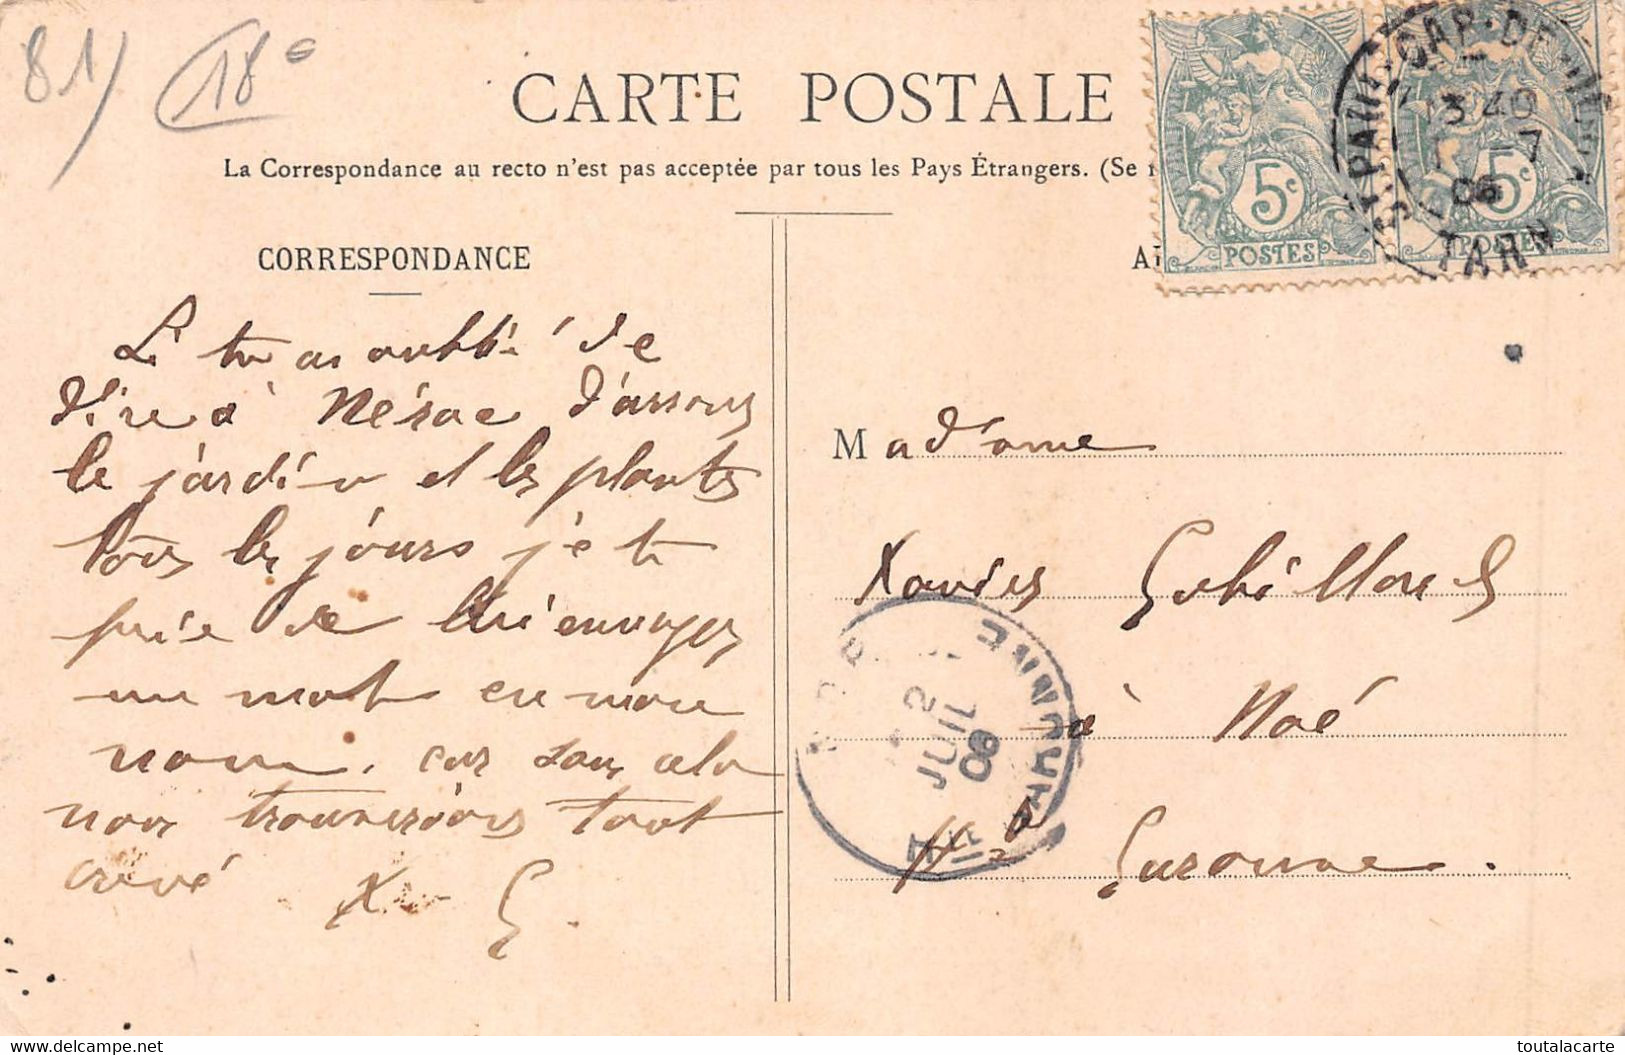 81)
18e
CARTE POSTALE
La Correspondance au recto n'est pas acceptée par tous les Pays Étrangers. (Se
CORRESPONDANCE
Si tu as oublié de
dire à Nérac d'arroser
le jardin et les plantes
tous les jours je te
prie de lui envoyer
un mot en mon
nom, car sans cela
nous trouverions tout
crevé
X G.
5c
POSTES
5c
POSTES
ST PAUL-CAP-DE-
13 40
-7
06
TARN
Madame
Xavier
à Noé
Hte Garonne.
2
JUIL
06
GARONNE
delcampe.net
toutalacarte